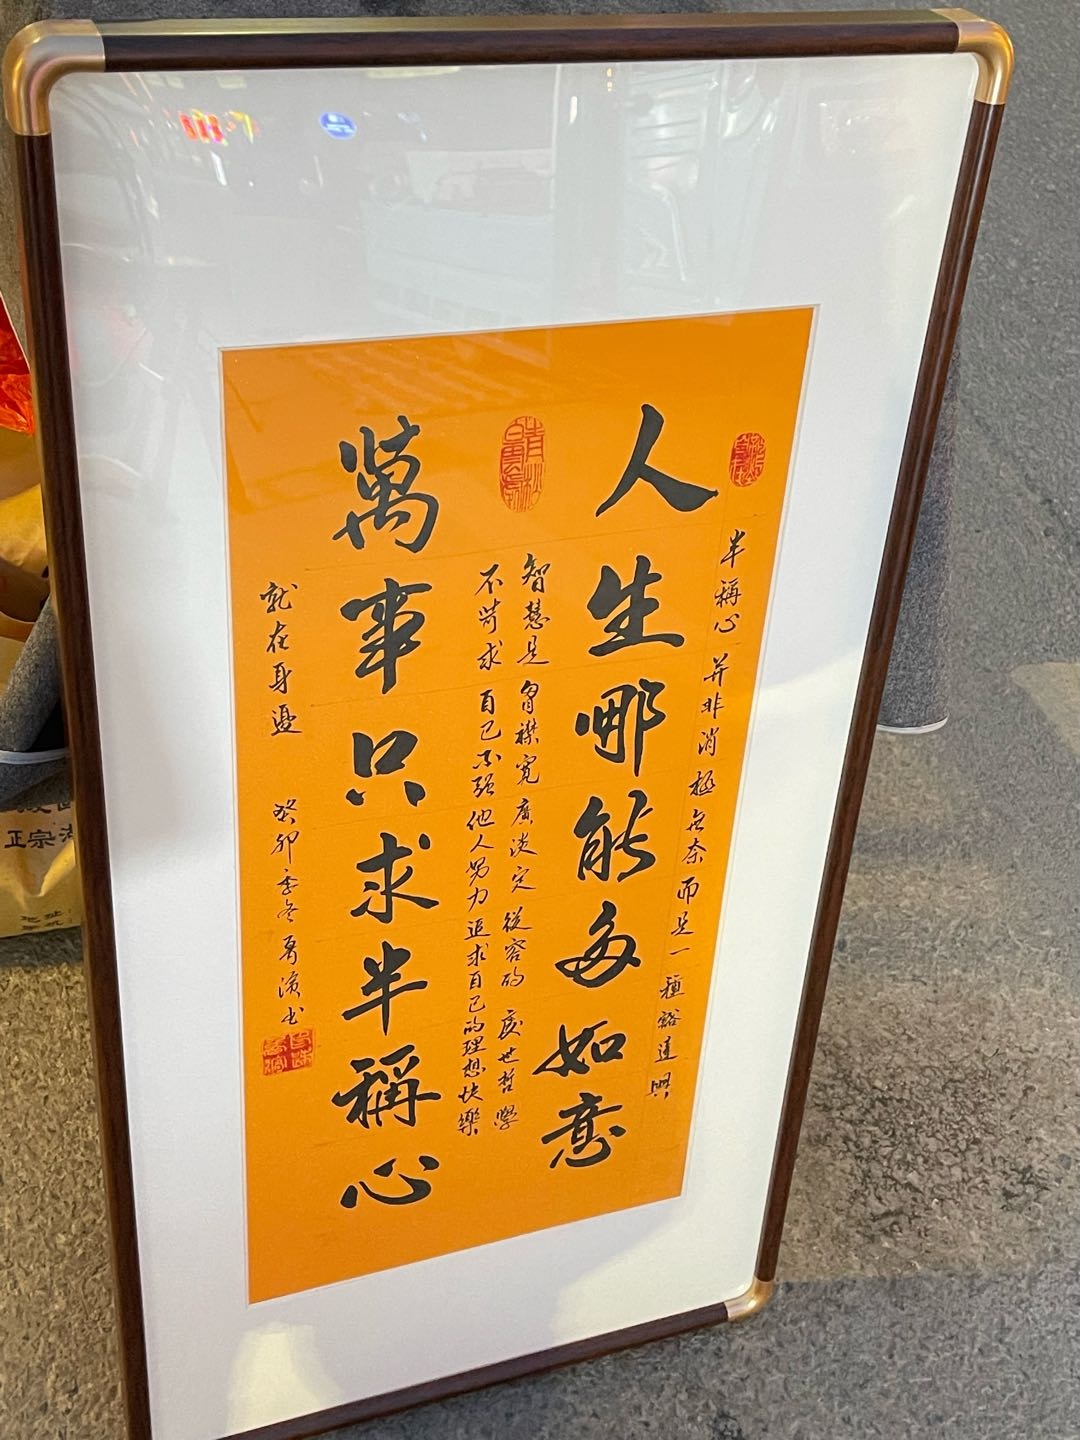 人生哪能多如意
萬事只求半稱心
半稱心 并非消極无奈而是一種豁達與
智慧是胷襟寬廣淡定從容的處世哲學
不苛求自己不强他人努力追求自己的理想快樂
就在身邊
癸卯季冬勇濱书
正宗